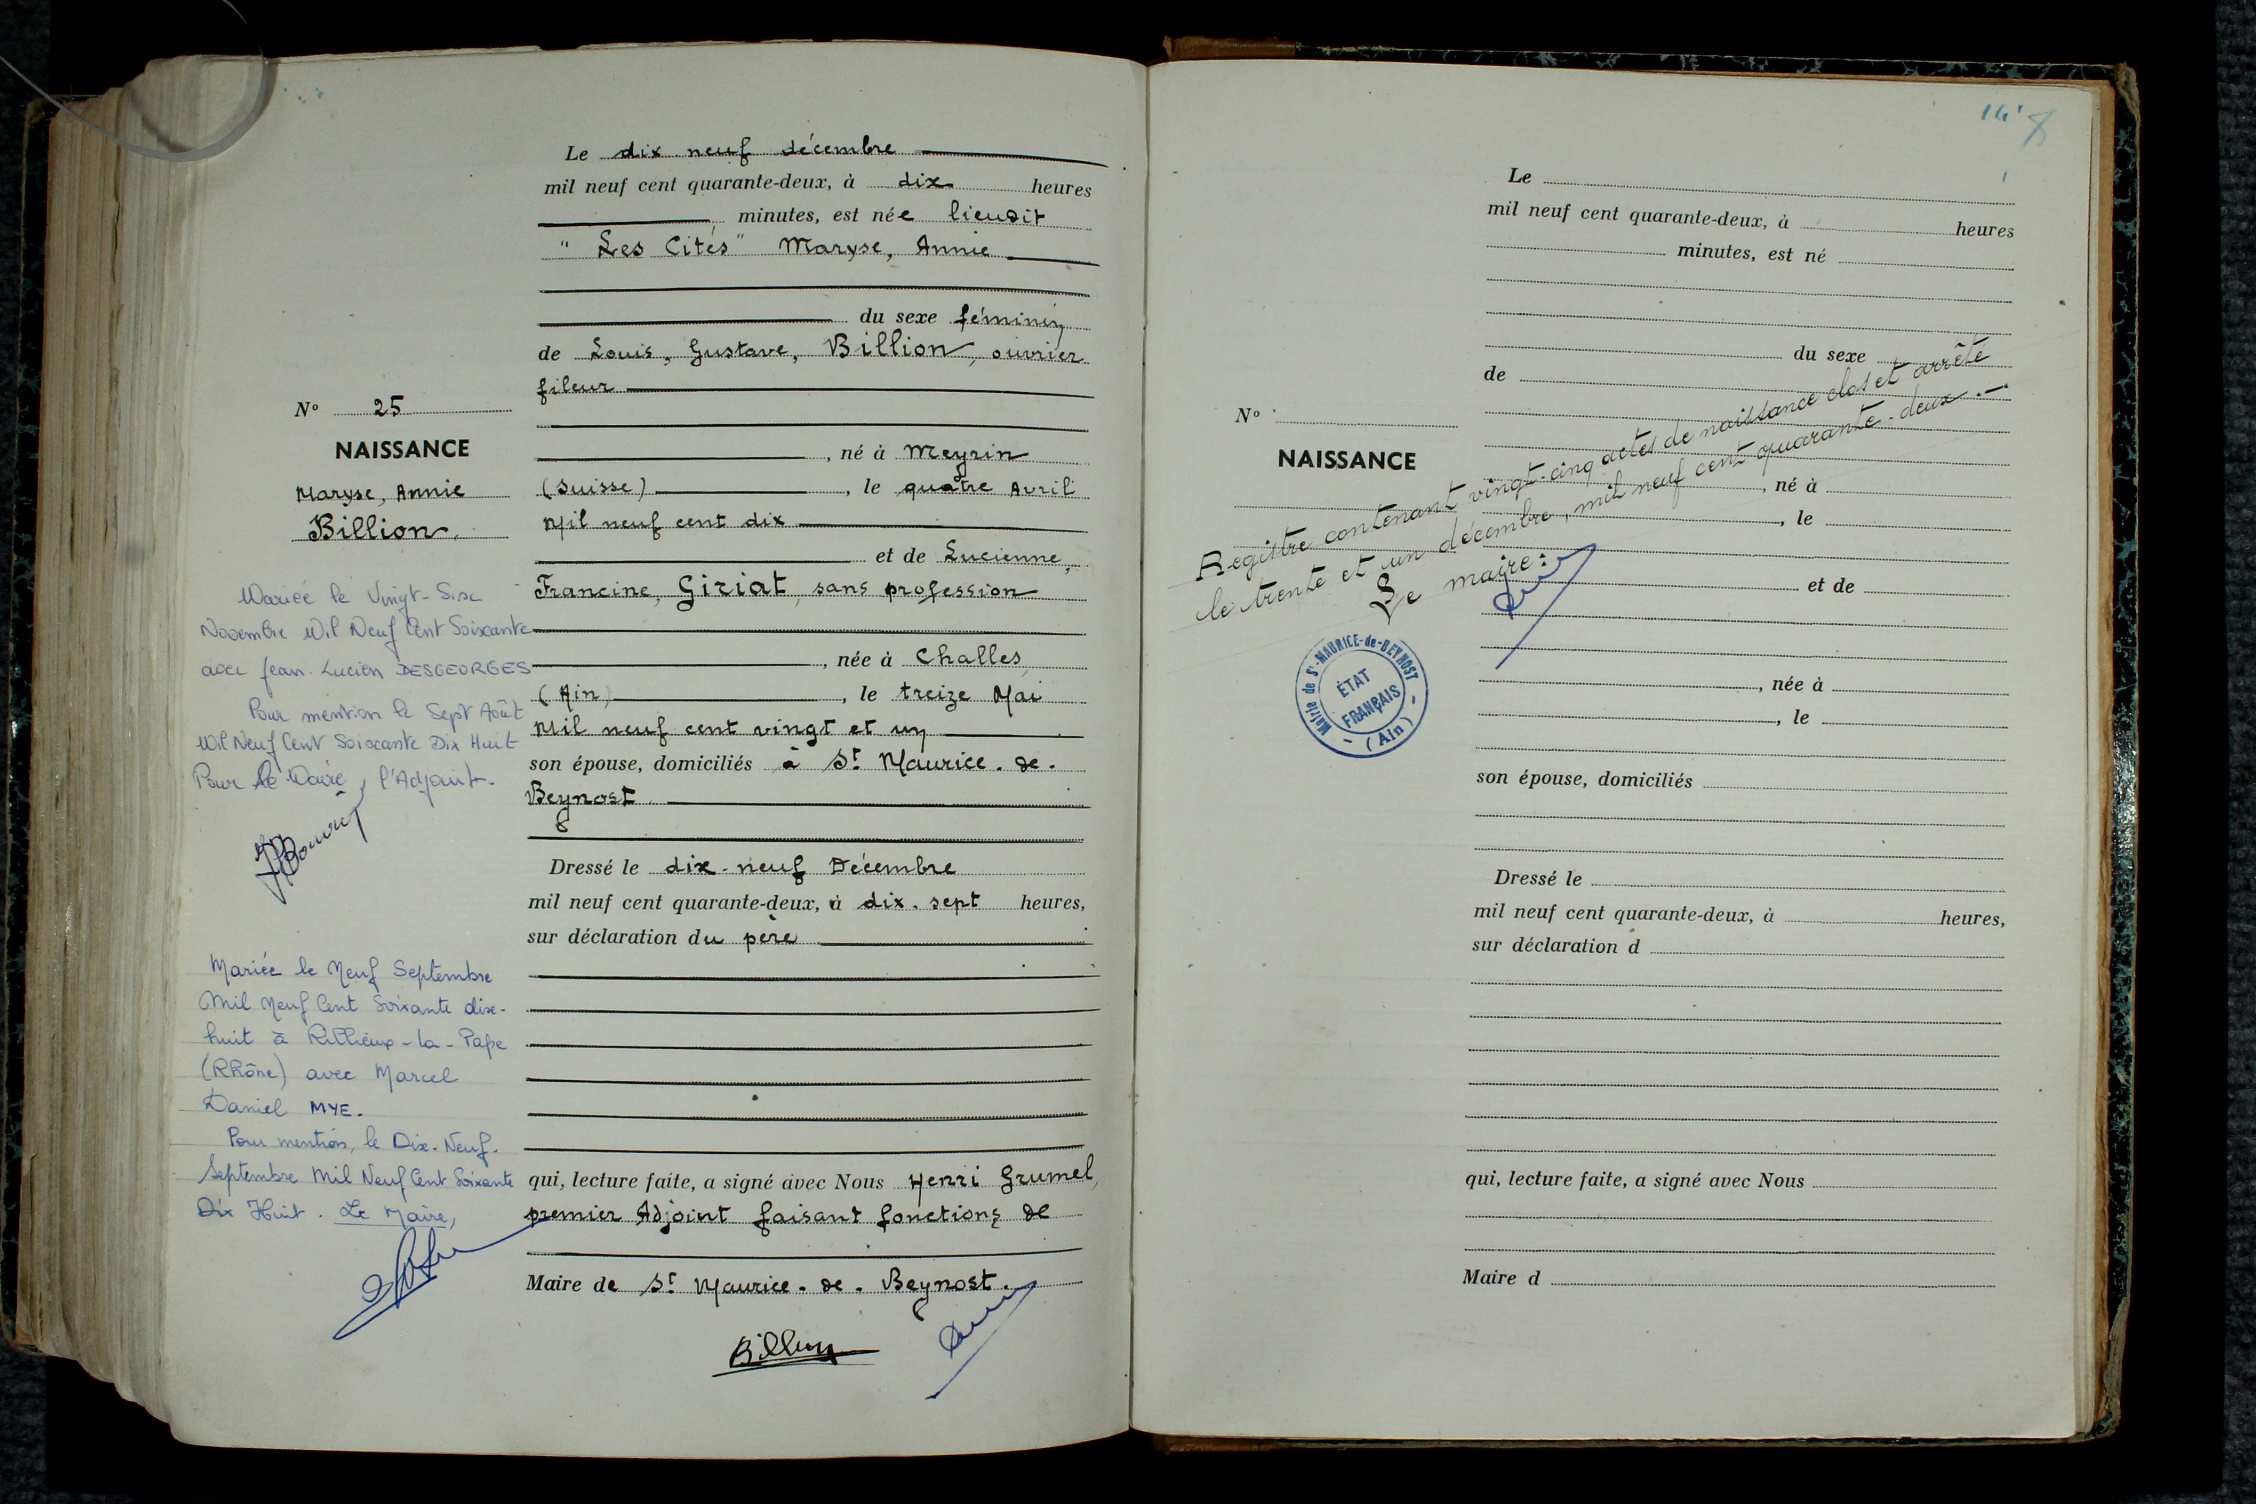 Le dix neuf décembre
mil neuf cent quarante-deux, à dix heures
minutes, est née lieudit
" Les Cités" Maryse, Annie
du sexe féminin
de Louis, Gustave, Billion, ouvrier
fileur
né à Meyrin
(Suisse), le quatre Avril
Mil neuf cent dix
et de Lucienne,
Francine, Giriat, sans profession
, née à Challes
(Ain), le treize Mai
Mil neuf cent vingt et un
son épouse, domiciliés à St Maurice-de-
Beynost
Dressé le dix-neuf Décembre
mil neuf cent quarante-deux, à dix-sept heures,
sur déclaration du père
qui, lecture faite, a signé avec Nous Henri Grumel,
premier Adjoint faisant fonctions de
Maire de St Maurice-de-Beynost.
Billion
No 25
NAISSANCE
Maryse, Annie
Billion.
Mariée le Vingt-Six
Novembre Mil Neuf Cent Soixante
avec Jean-Lucien DESGEORGES
Pour mention le Sept Août
Mil Neuf Cent Soixante Dix Huit
Pour le Maire, l'Adjoint.
Mariée le Neuf Septembre
Mil Neuf Cent Soixante dix-
huit à Rillieux-la-Pape
(Rhône) avec Marcel
Daniel MYE.
Pour mention, le Dix-Neuf-
Septembre Mil Neuf Cent Soixante
Dix Huit. Le Maire,
Le
mil neuf cent quarante-deux, à heures
minutes, est né
du sexe
de
No
NAISSANCE
, né à
, le
et de
, née à
, le
son épouse, domiciliés
Dressé le
mil neuf cent quarante-deux, à heures,
sur déclaration d
qui, lecture faite, a signé avec Nous
Maire d
Registre contenant vingt-cinq actes de naissance clos et arrêté
le trente et un décembre, mil neuf cent quarante-deux.-
Le maire:
Mairie de St-MAURICE-de-BEYNOST
ÉTAT
FRANÇAIS
- (Ain) -